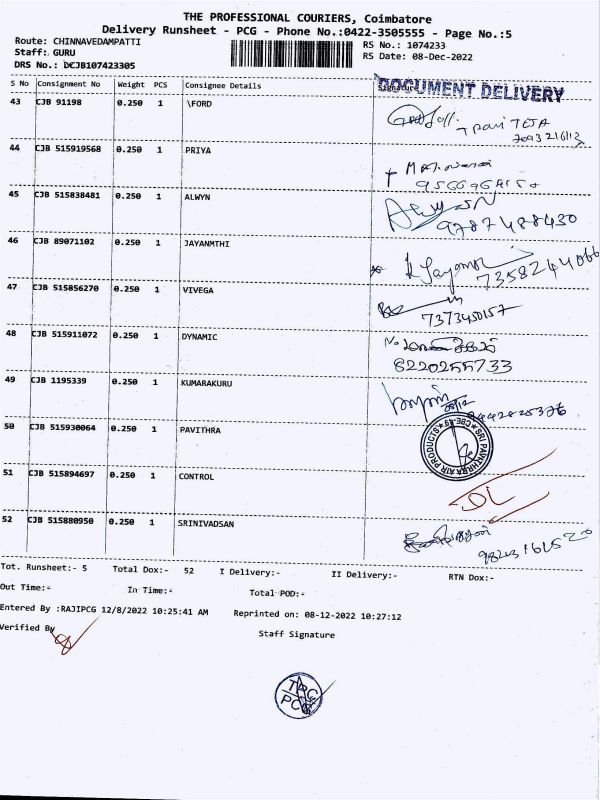 THE PROFESSIONAL COURIERS, Coimbatore
Delivery Runsheet - PCG - Phone No.:0422-3505555 - Page No.:5
Route: CHINNAVEDAMPATTI
RS No.: 1074233
Staff: GURU
RS Date: 08-Dec-2022
DRS No.: DCJB107423305
S No Consignment No Weight PCS Consignee Details Signature
DOCUMENT DELIVERY
43 CJB 91198 0.250 1 \FORD
44 CJB 515919568 0.250 1 PRIYA
45 CJB 515838481 0.250 1 ALWYN
9787488430
46 CJB 89071102 0.250 1 JAYANMTHI
7358244066
47 CJB 515856270 0.250 1 VIVEGA
7373450157
48 CJB 515911072 0.250 1 DYNAMIC
8220255733
49 CJB 1195339 0.250 1 KUMARAKURU
50 CJB 515930064 0.250 1 PAVITHRA
SRI PAVITHRA AIR PRODUCTS ★ CBE-49 ★
51 CJB 515894697 0.250 1 CONTROL
52 CJB 515880950 0.250 1 SRINIVADSAN
Tot. Runsheet:- 5 Total Dox:- 52 I Delivery:- II Delivery:- RTN Dox:-
Out Time:- In Time:- Total POD:-
Entered By :RAJIPCG 12/8/2022 10:25:41 AM Reprinted on: 08-12-2022 10:27:12
Verified By Staff Signature
TPC
PCG